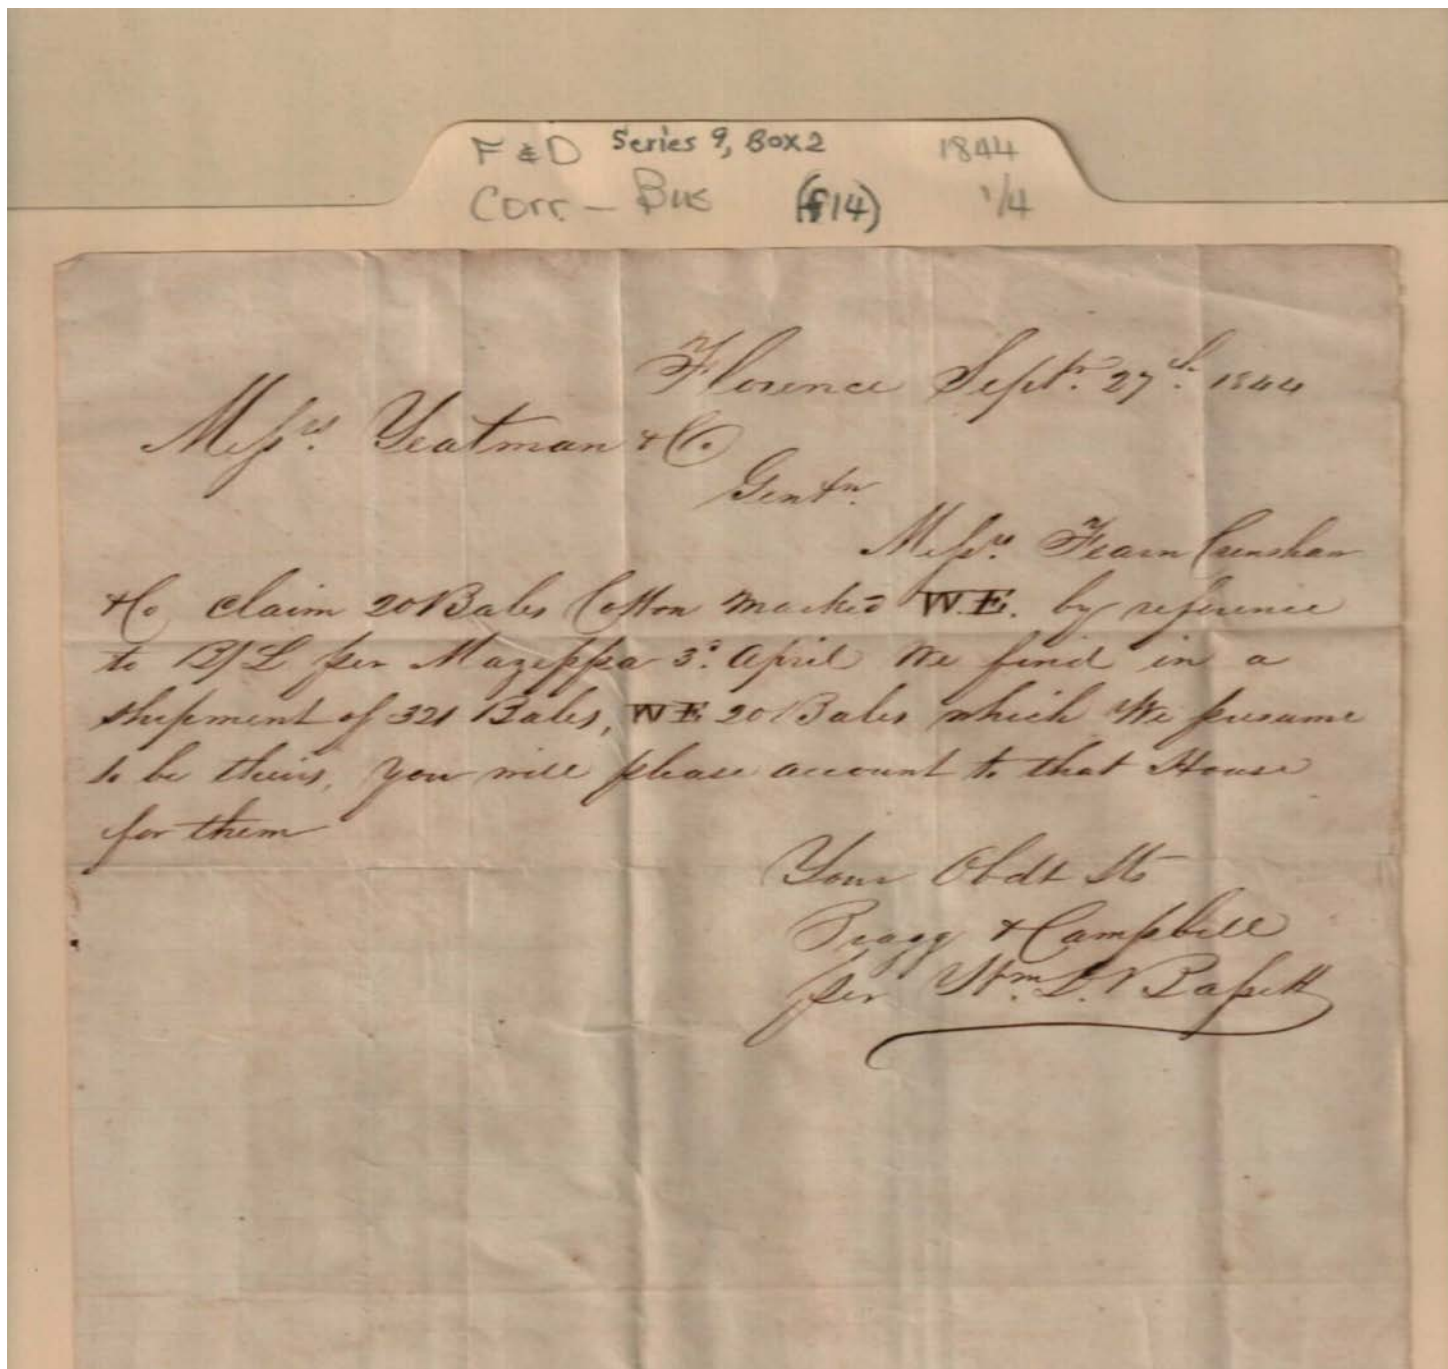 F & D Series 9, Box 2 1844
Corr - Bus (f14) 1/4
Florence Septr. 27th. 1844
Messrs. Yeatman & Co.
Gentn.
Messrs. Fearn Crenshaw
& Co claim 20 Bales Cotton marked W.E. by reference
to B/L per Mazeppa 3d. April We find in a
shipment of 321 Bales, WE 20 Bales which We presume
to be theirs, you will please account to that House
for them
Your Obdt Sts
& Campbell
per Wm. L. Bassett